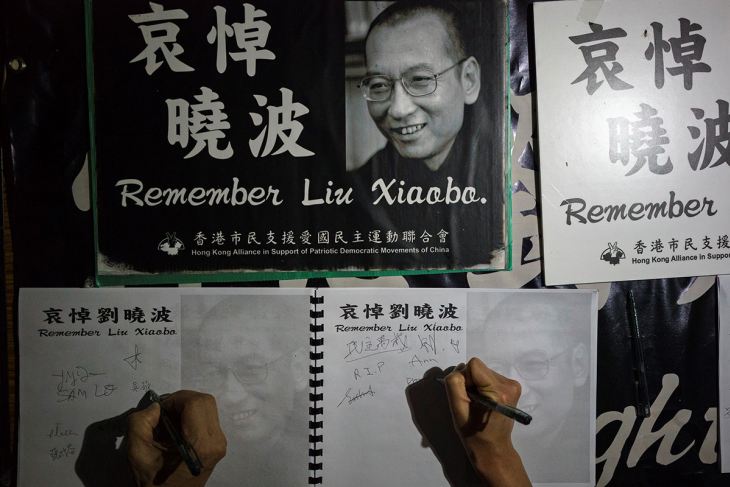 哀悼
曉波
Remember Liu Xiaobo.
香港市民支援愛國民主運動聯合會
Hong Kong Alliance in Support of Patriotic Democratic Movements of China
哀悼
曉波
Remember
香港市民支援
Hong Kong Alliance in Suppor
哀悼劉曉波
Remember Liu Xiaobo.
SAM LO
哀悼劉曉波
Remember Liu Xiaobo.
R.I.P
Ann
ght